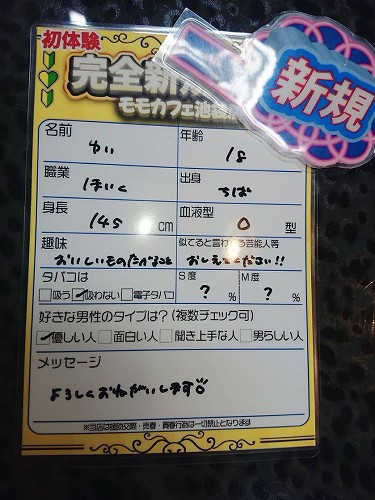 初体験
完全新規
モモカフェ池袋
新規
名前 ゆい 年齢 18
職業 ほいく 出身 ちば
身長 145 cm 血液型 O 型
趣味 おいしいものたべること
似てると言われる芸能人等 おしえてください!!
タバコは S度 M度
吸う 吸わない 電子タバコ ? % ? %
好きな男性のタイプは?(複数チェック可)
優しい人 面白い人 聞き上手な人 男らしい人
メッセージ
よろしくおねがいします
※当店は援助交際・売春・買春行為は一切禁止となります